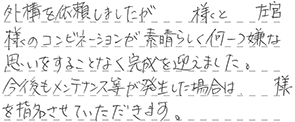 外構を依頼しましたが 様と 左官
様のコンビネーションが素晴らしく何一つ嫌な
思いをすることなく完成を迎えました。
今後もメンテナンス等が発生した場合は、 様
を指名させていただきます。